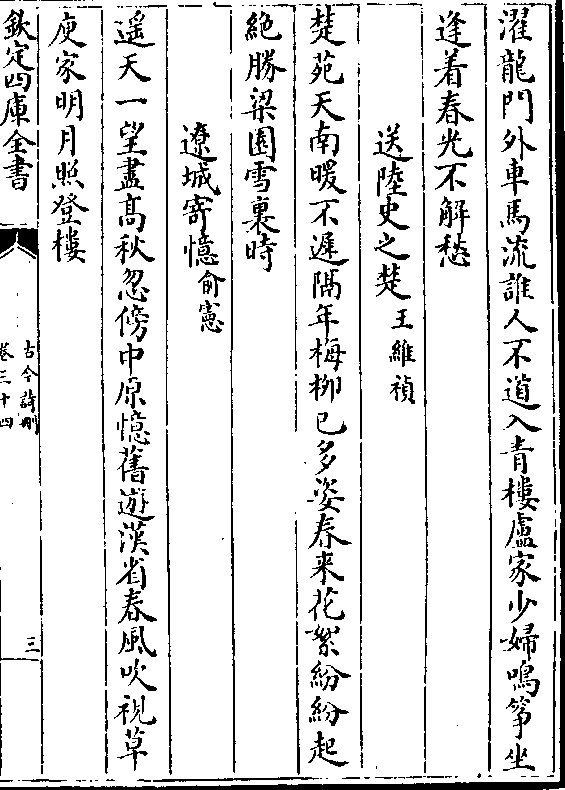 濯龍門外車馬流誰人不道入青樓盧家少婦鳴箏坐
逢着春光不解愁
送陸史之楚 王維禎
楚苑天南暖不遲隔年梅柳已多姿春来花絮紛紛起
絶勝梁園雪裏時
遼城寄憶 俞憲
遥天一望盡髙秋忽傍中原憶舊遊漢省春風吹視草
庾家明月照登樓
欽定四庫全書
古今詩刪
卷三十四
三